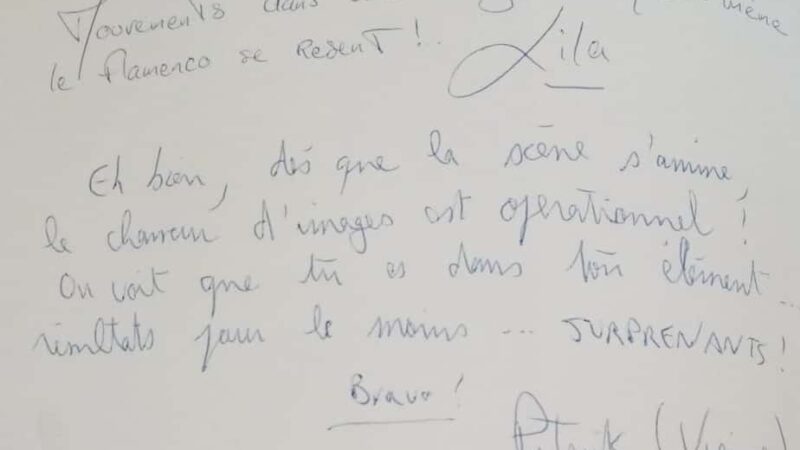 Mouvements dans
même
le flamenco se resent !.
Lila
Eh bien, dés que la scène s'anime,
le chasseur d'images est operationnel !
On voit que tu es dans ton élément...
résultats pour le moins ... SURPRENANTS !
Bravo !